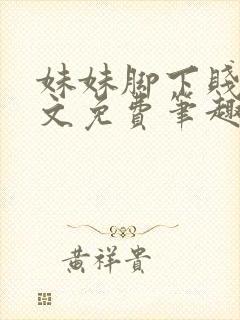 妹妹脚下贱
文免费笔趣
黄祥贵